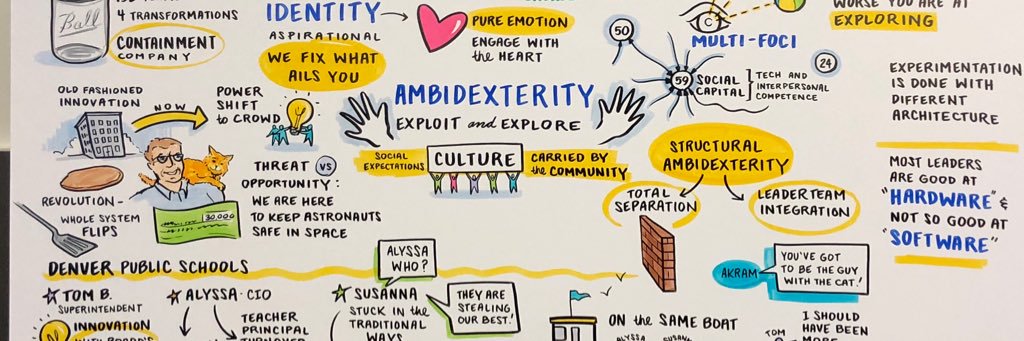 Ball
4 TRANSFORMATIONS
CONTAINMENT
COMPANY
IDENTITY
ASPIRATIONAL
WE FIX WHAT
AILS YOU
PURE EMOTION
ENGAGE WITH
the HEART
50
MULTI-FOCI
WORSE YOU ARE AT
EXPLORING
OLD FASHIONED
INNOVATION
NOW
POWER
SHIFT
to CROWD
AMBIDEXTERITY
EXPLOIT and EXPLORE
59
SOCIAL
CAPITAL
TECH AND
INTERPERSONAL
COMPETENCE
24
EXPERIMENTATION
IS DONE WITH
DIFFERENT
ARCHITECTURE
REVOLUTION-
WHOLE SYSTEM
FLIPS
30,000
THREAT VS
OPPORTUNITY:
WE ARE HERE
TO KEEP ASTRONAUTS
SAFE IN SPACE
SOCIAL
EXPECTATIONS
CULTURE
CARRIED BY
the COMMUNITY
STRUCTURAL
AMBIDEXTERITY
TOTAL
SEPARATION
LEADERTEAM
INTEGRATION
MOST LEADERS
ARE GOOD AT
"HARDWARE" &
NOT SO GOOD AT
"SOFTWARE"
DENVER PUBLIC SCHOOLS
TOM B.
SUPERINTENDENT
INNOVATION
ALYSSA · CIO
TEACHER
PRINCIPAL
ALYSSA
WHO?
SUSANNA
STUCK IN the
TRADITIONAL
WAYS
THEY ARE
STEALING
OUR BEST!
ON the SAME BOAT
ALYSSA
SUSANA
AKRAM
YOU'VE GOT
TO BE THE GUY
WITH THE CAT!
TOM
I SHOULD
HAVE BEEN
MORE